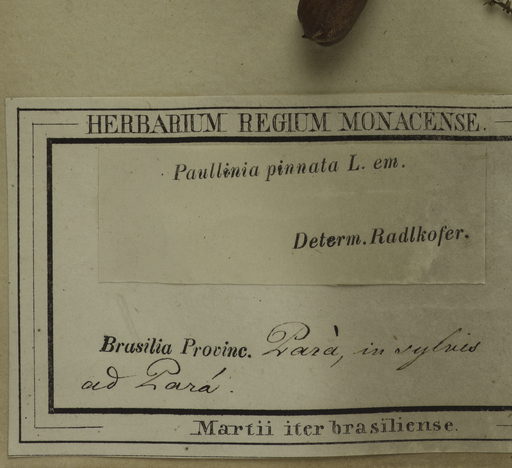 HERBARIUM REGIUM MONACENSE.
Paullinia pinnata L. em.
Determ. Radlkofer.
Brasilia Provinc. Parà, in sylvis
ad Pará.
Martii iter brasiliense.